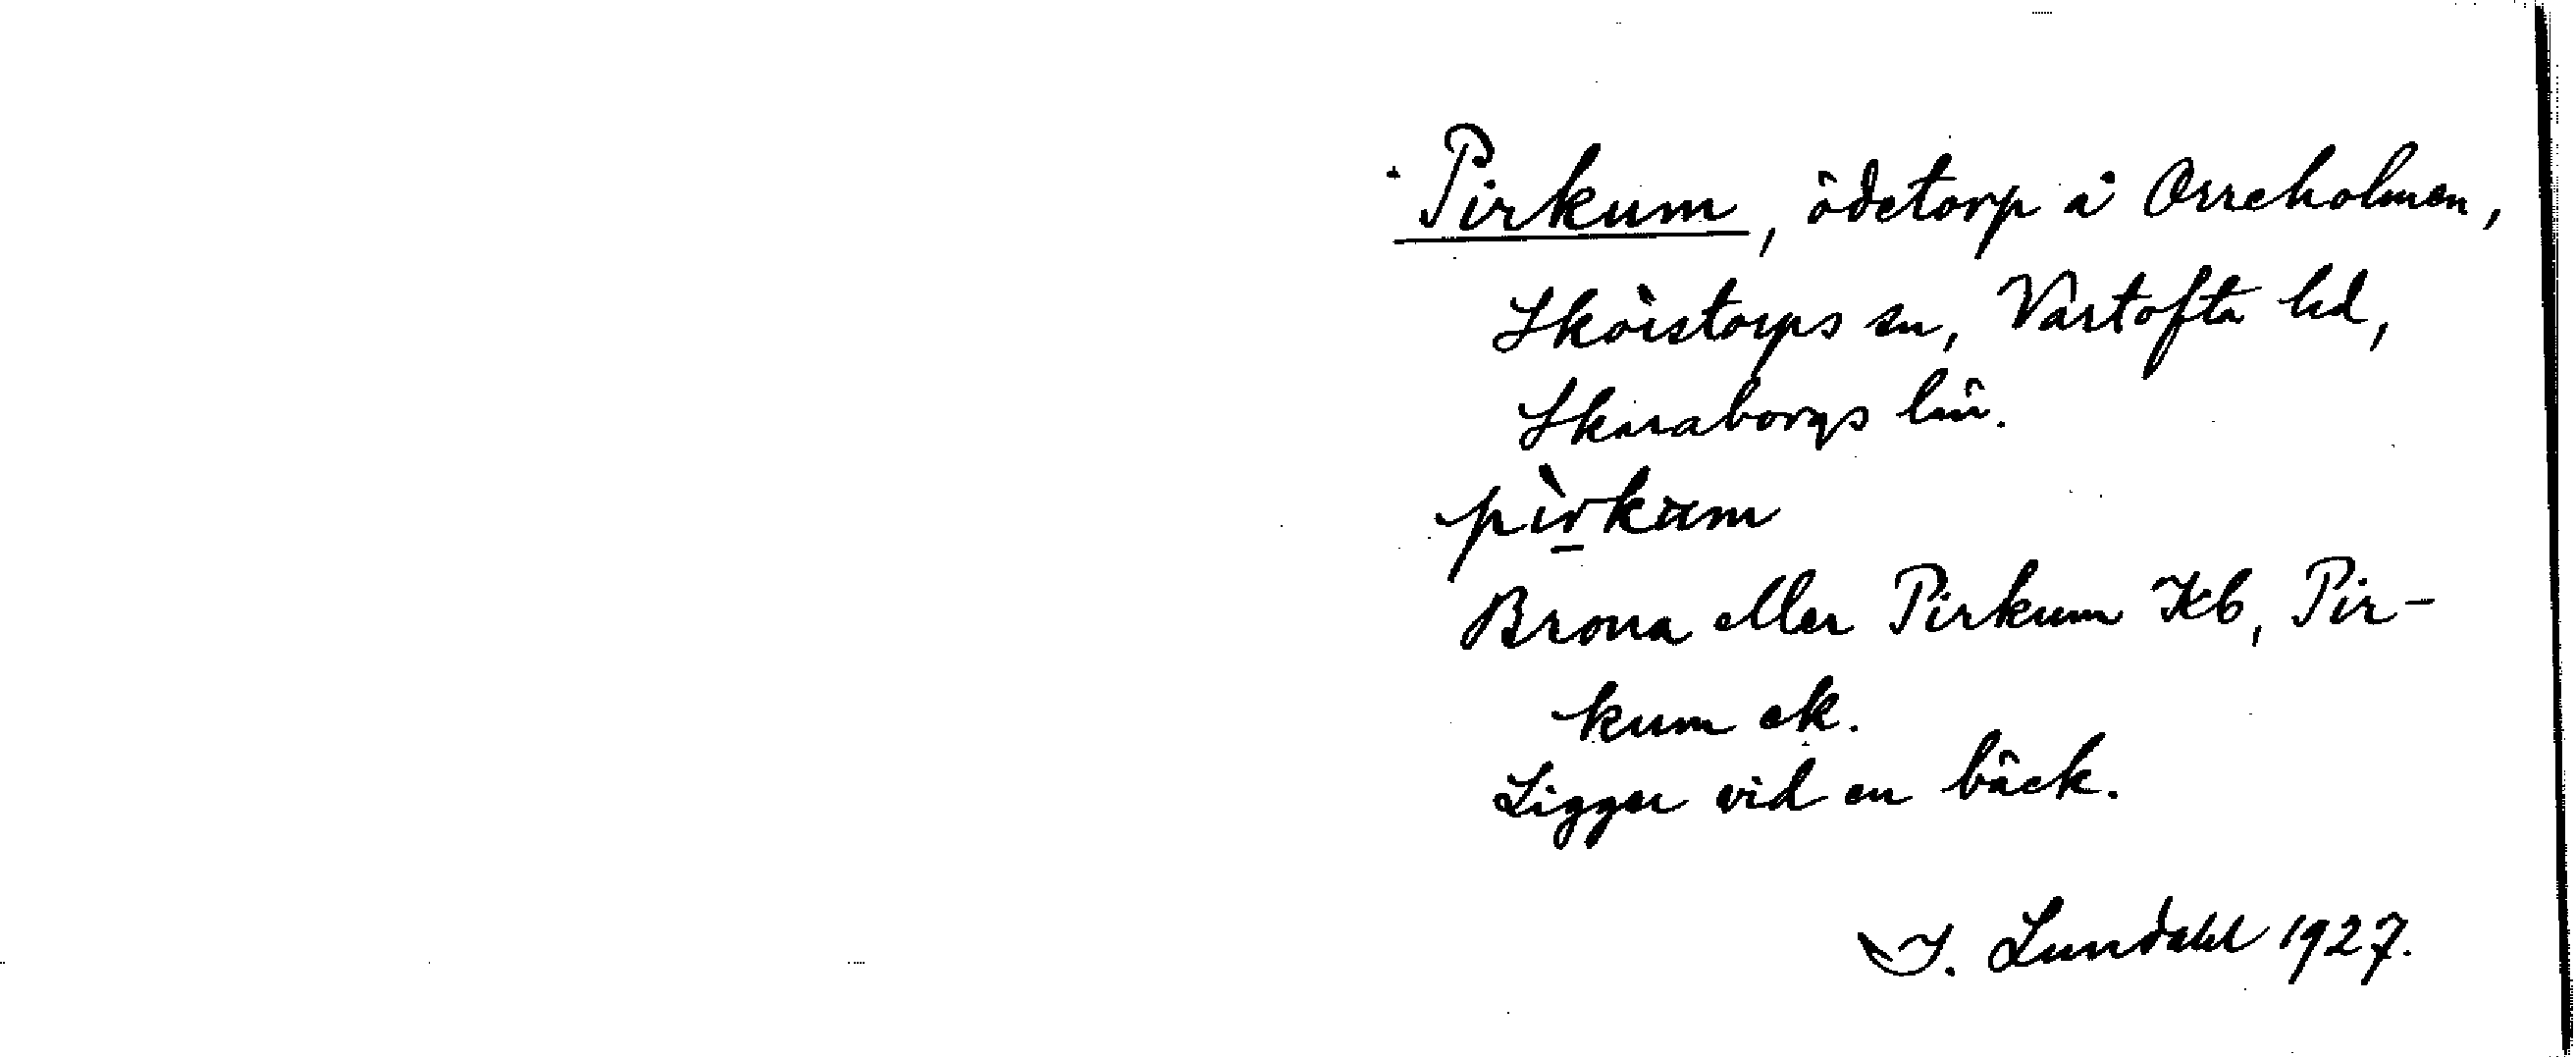 Pirkum, ödetorp å Orreholmen,
Sköistorps sn, Vartofta hd,
Skaraborgs län.
pìrkum
Brona eller Pirkum Kb, Pir-
kum ek.
Ligger vid en bäck.
I. Lundahl 1927.